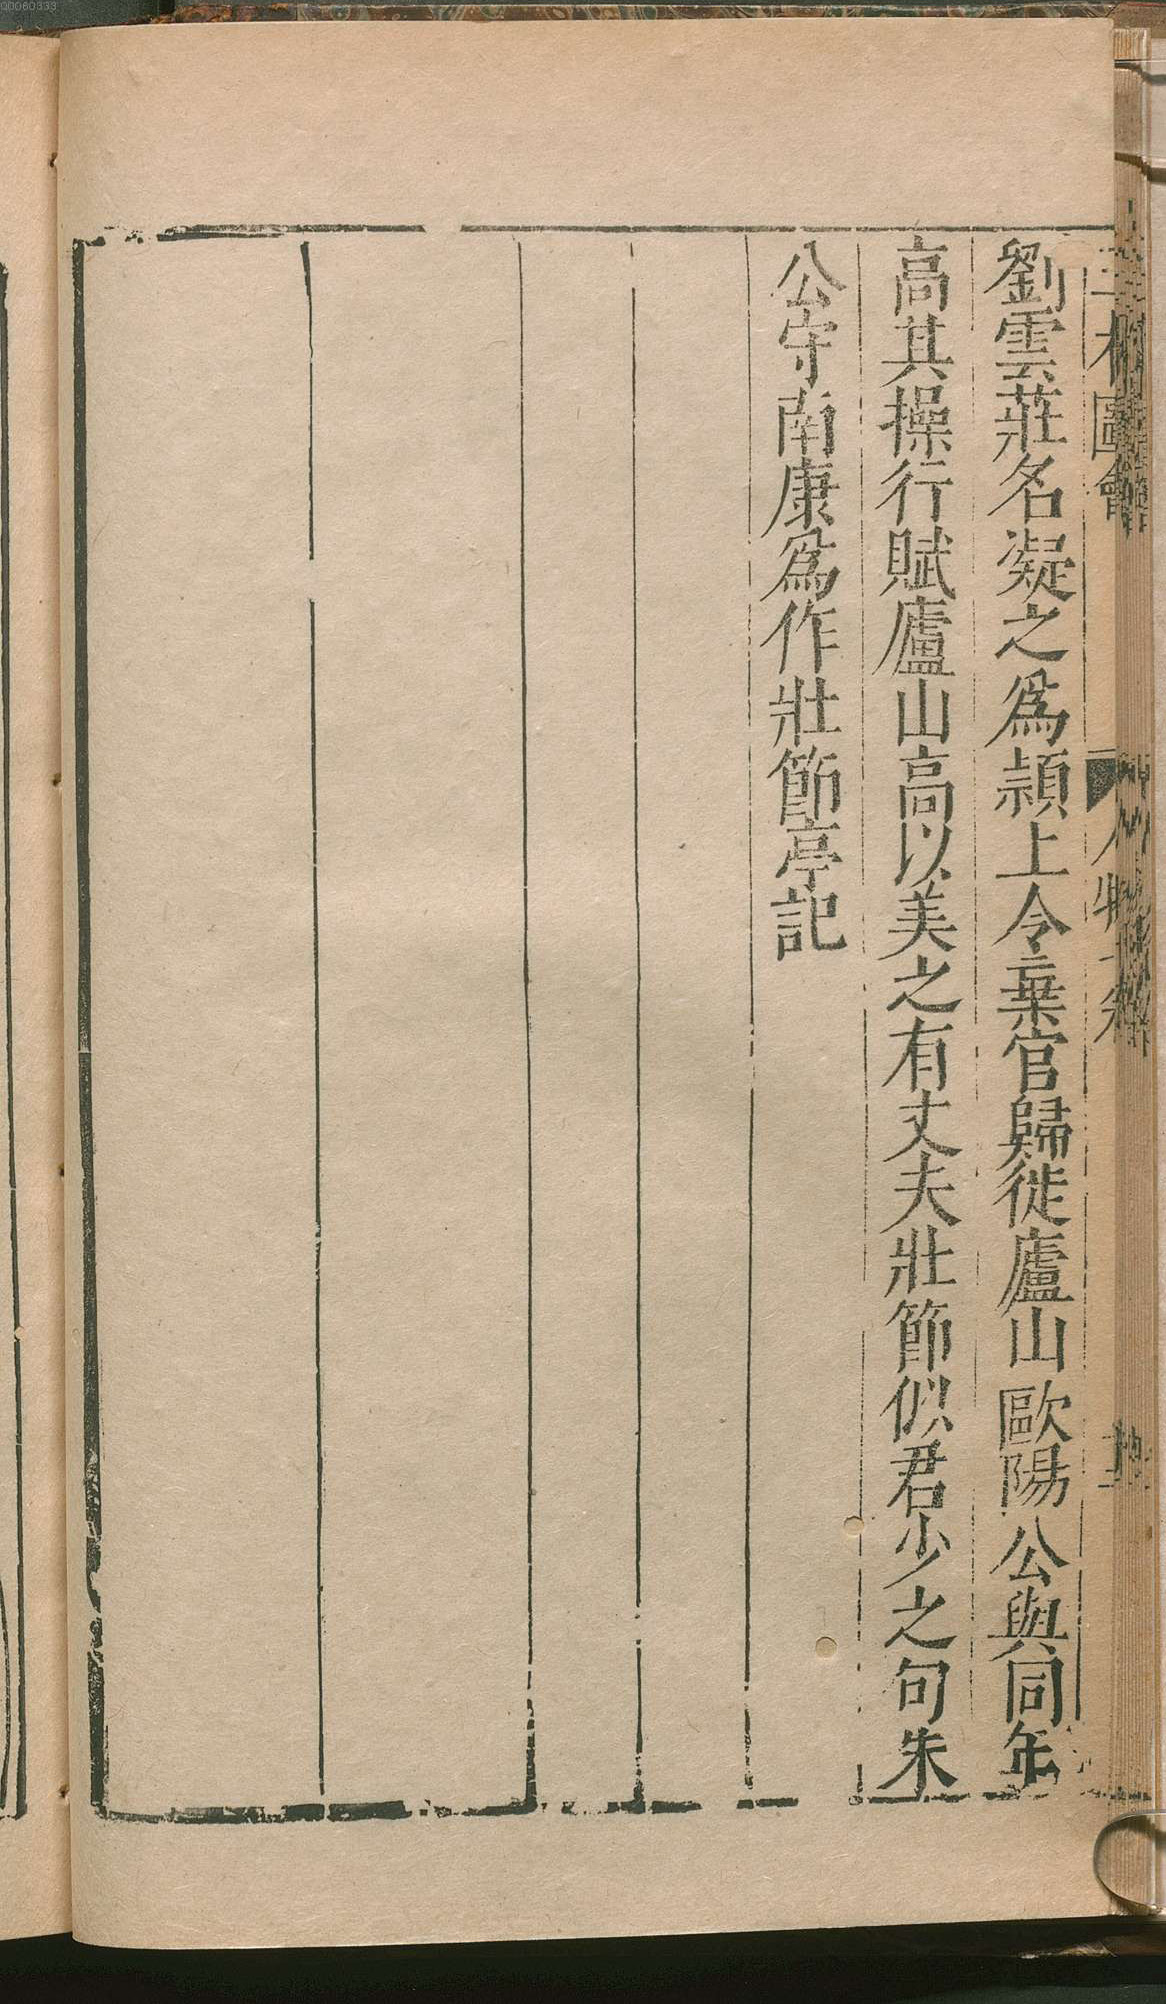 劉雲莊名凝之爲潁上令棄官歸徙廬山歐陽公與同年
高其操行賦廬山高以美之有丈夫壯節似君少之句朱
公守南康爲作壯節亭記
00060333